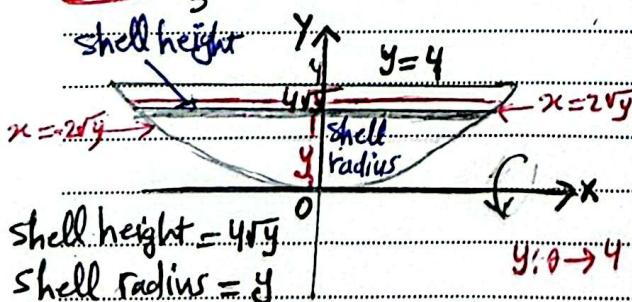 Y
shell height
4
y=4
4√y
x=2√y
x=-2√y
shell
radius
y
X
0
shell height = 4√y
shell radius = y
y: 0 → 4